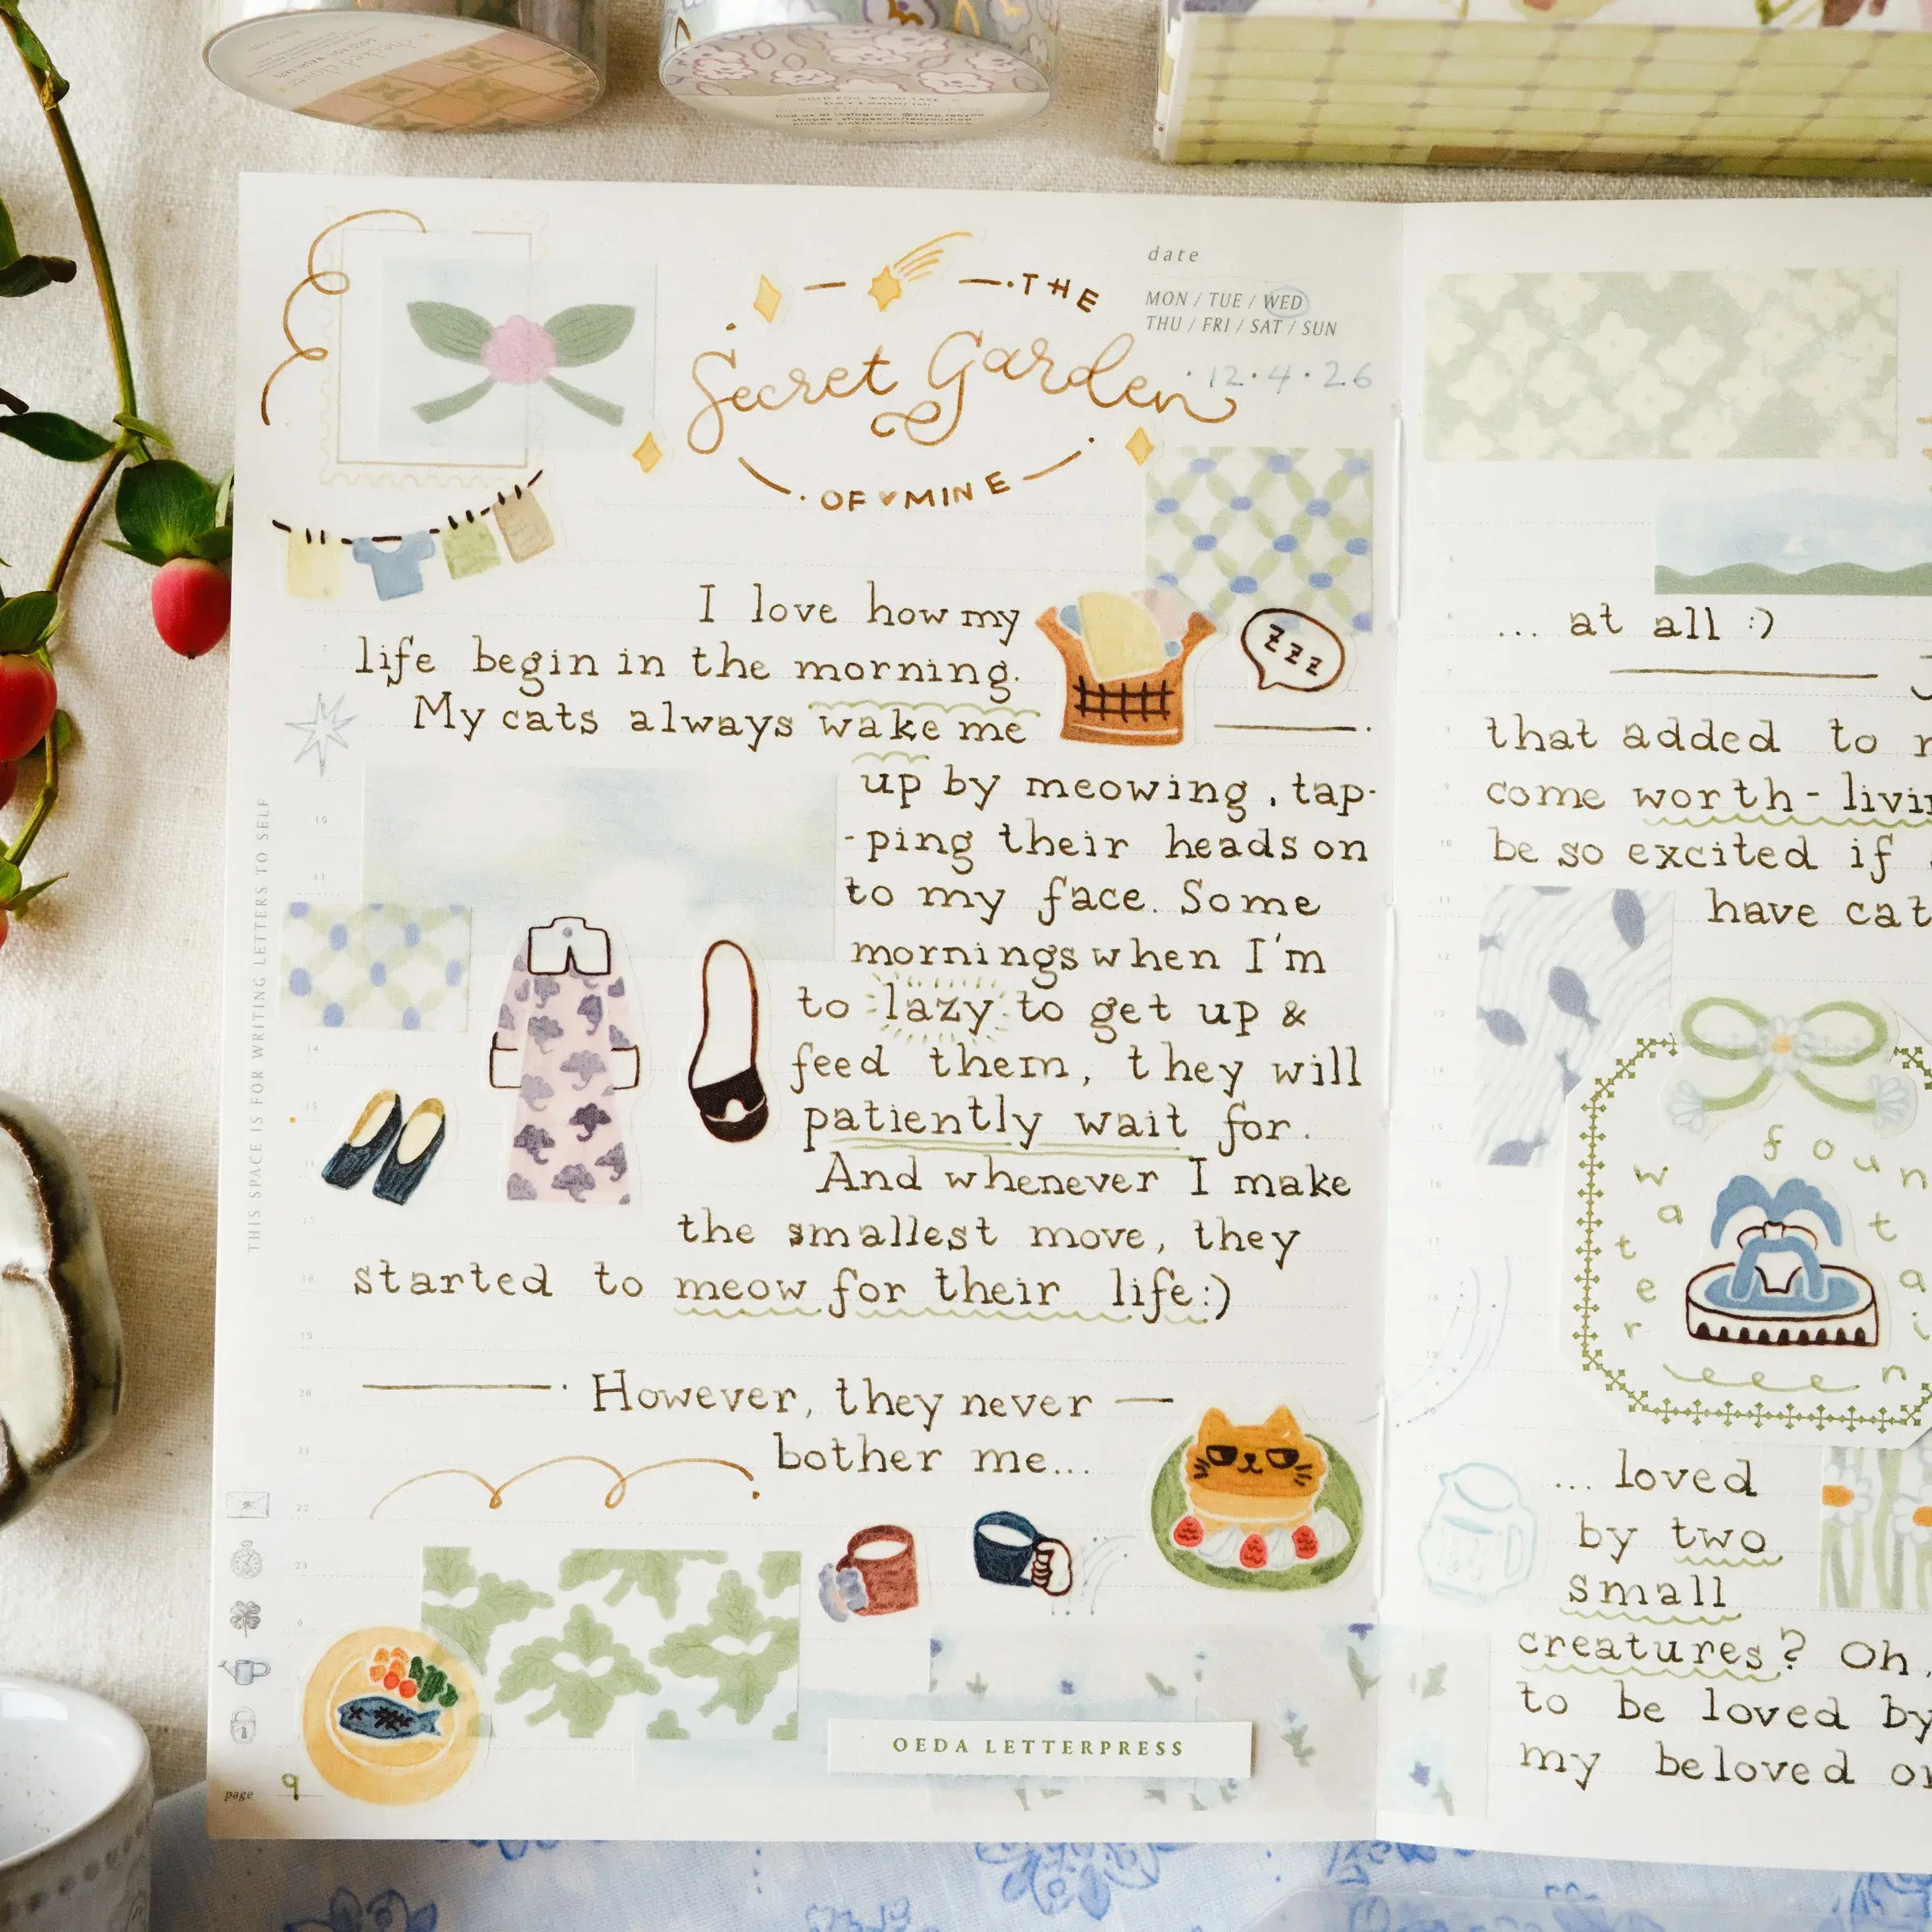 GOLD FOIL WASHI TAPE
date
MON / TUE / WED
THU / FRI / SAT / SUN
12.4.26
THE
Secret Garden
OF ♥ MINE
I love how my
life begin in the morning.
My cats always wake me
zzz
up by meowing, tap-
-ping their heads on
to my face. Some
mornings when I'm
to lazy to get up &
feed them, they will
patiently wait for.
And whenever I make
the smallest move, they
started to meow for their life:)
However, they never —
bother me...
THIS SPACE IS FOR WRITING LETTERS TO SELF
OEDA LETTERPRESS
page 9
... at all :)
that added to
come worth-livi
be so excited if
have cat
water fountain
... loved
by two
small
creatures? Oh,
to be loved by
my beloved